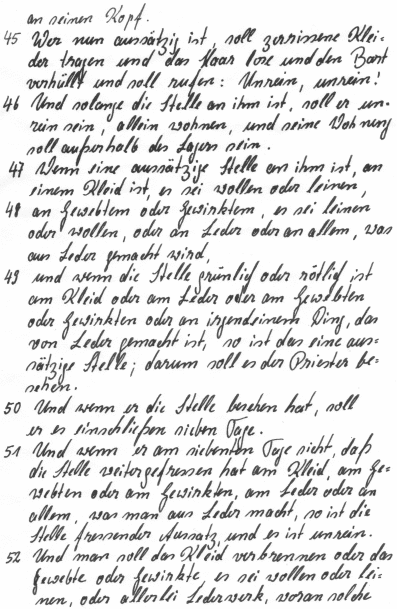 an seinen Kopf.
45 Wer nun aussätzig ist, soll zerrissene Klei-
der tragen und das Haar lose und den Bart
verhüllt und soll rufen: Unrein, unrein!
46 Und solange die Stelle an ihm ist, soll er un-
rein sein, allein wohnen, und seine Wohnung
soll außerhalb des Lagers sein.
47 Wenn eine aussätzige Stelle an ihm ist, an
einem Kleid ist, es sei wollen oder leinen,
48 an Gewebtem oder Gewirktem, es sei leinen
oder wollen, oder an Leder oder an allem, was
aus Leder gemacht wird,
49 und wenn die Stelle grünlich oder rötlich ist
am Kleid oder am Leder oder am Gewebten
oder Gewirkten oder an irgendeinem Ding, das
von Leder gemacht ist, so ist das eine aus-
sätzige Stelle; darum soll es der Priester be=
sehen.
50 Und wenn er die Stelle besehen hat, soll
er es einschließen sieben Tage.
51 Und wenn er am siebenten Tage sieht, daß
die Stelle weitergefressen hat am Kleid, am Ge=
webten oder am Gewirkten, am Leder oder an
allem, was man aus Leder macht, so ist die
Stelle fressender Aussatz, und es ist unrein.
52 Und man soll das Kleid verbrennen oder das
Gewebte oder Gewirkte, es sei wollen oder lei=
nen, oder allerlei Lederwerk, woran solche